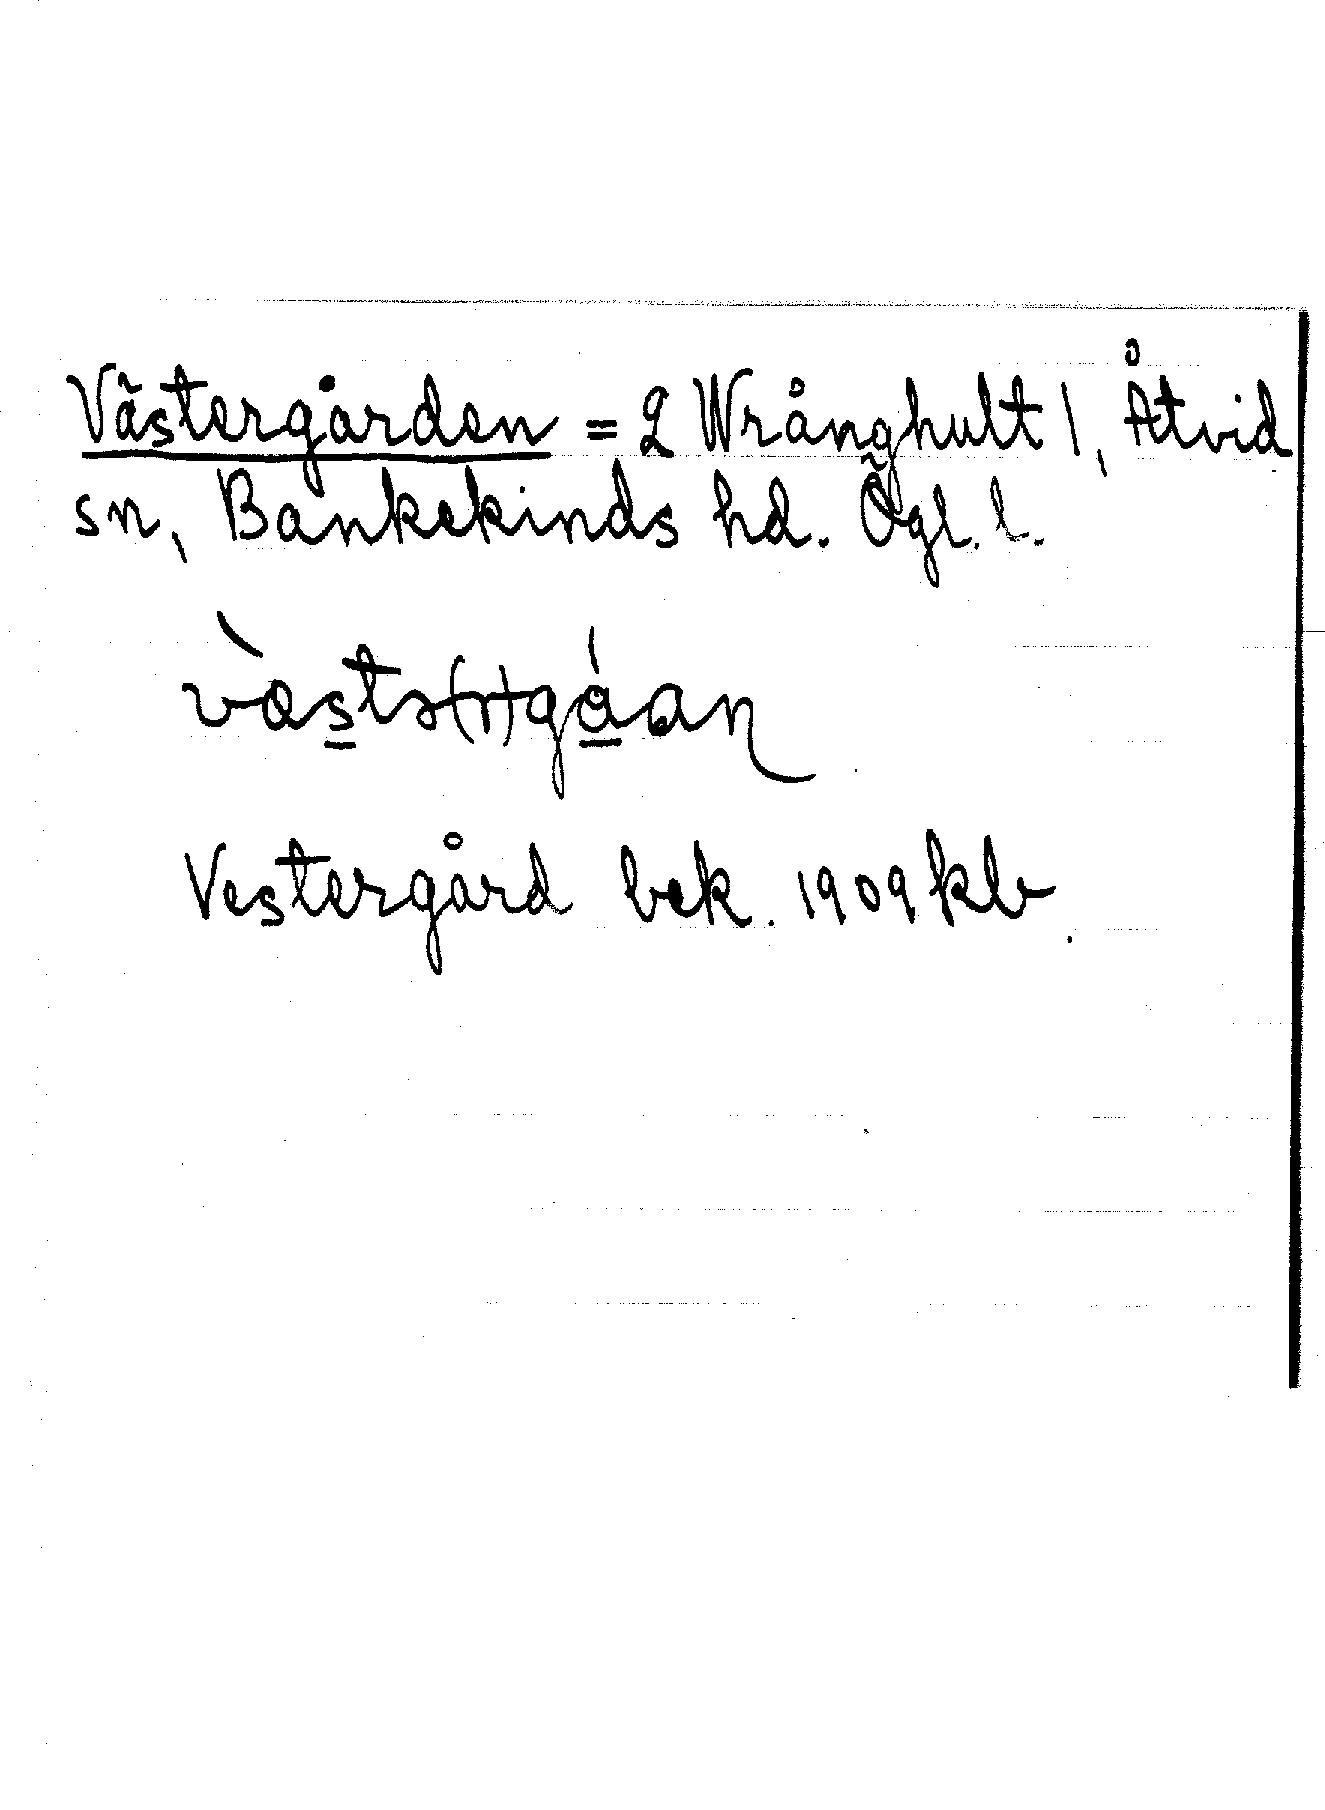 Västergården = 2 Wrånghult 1, Åtvid
sn, Bankekinds hd. Ögl. l.
Vestergård bek. 1909 kb